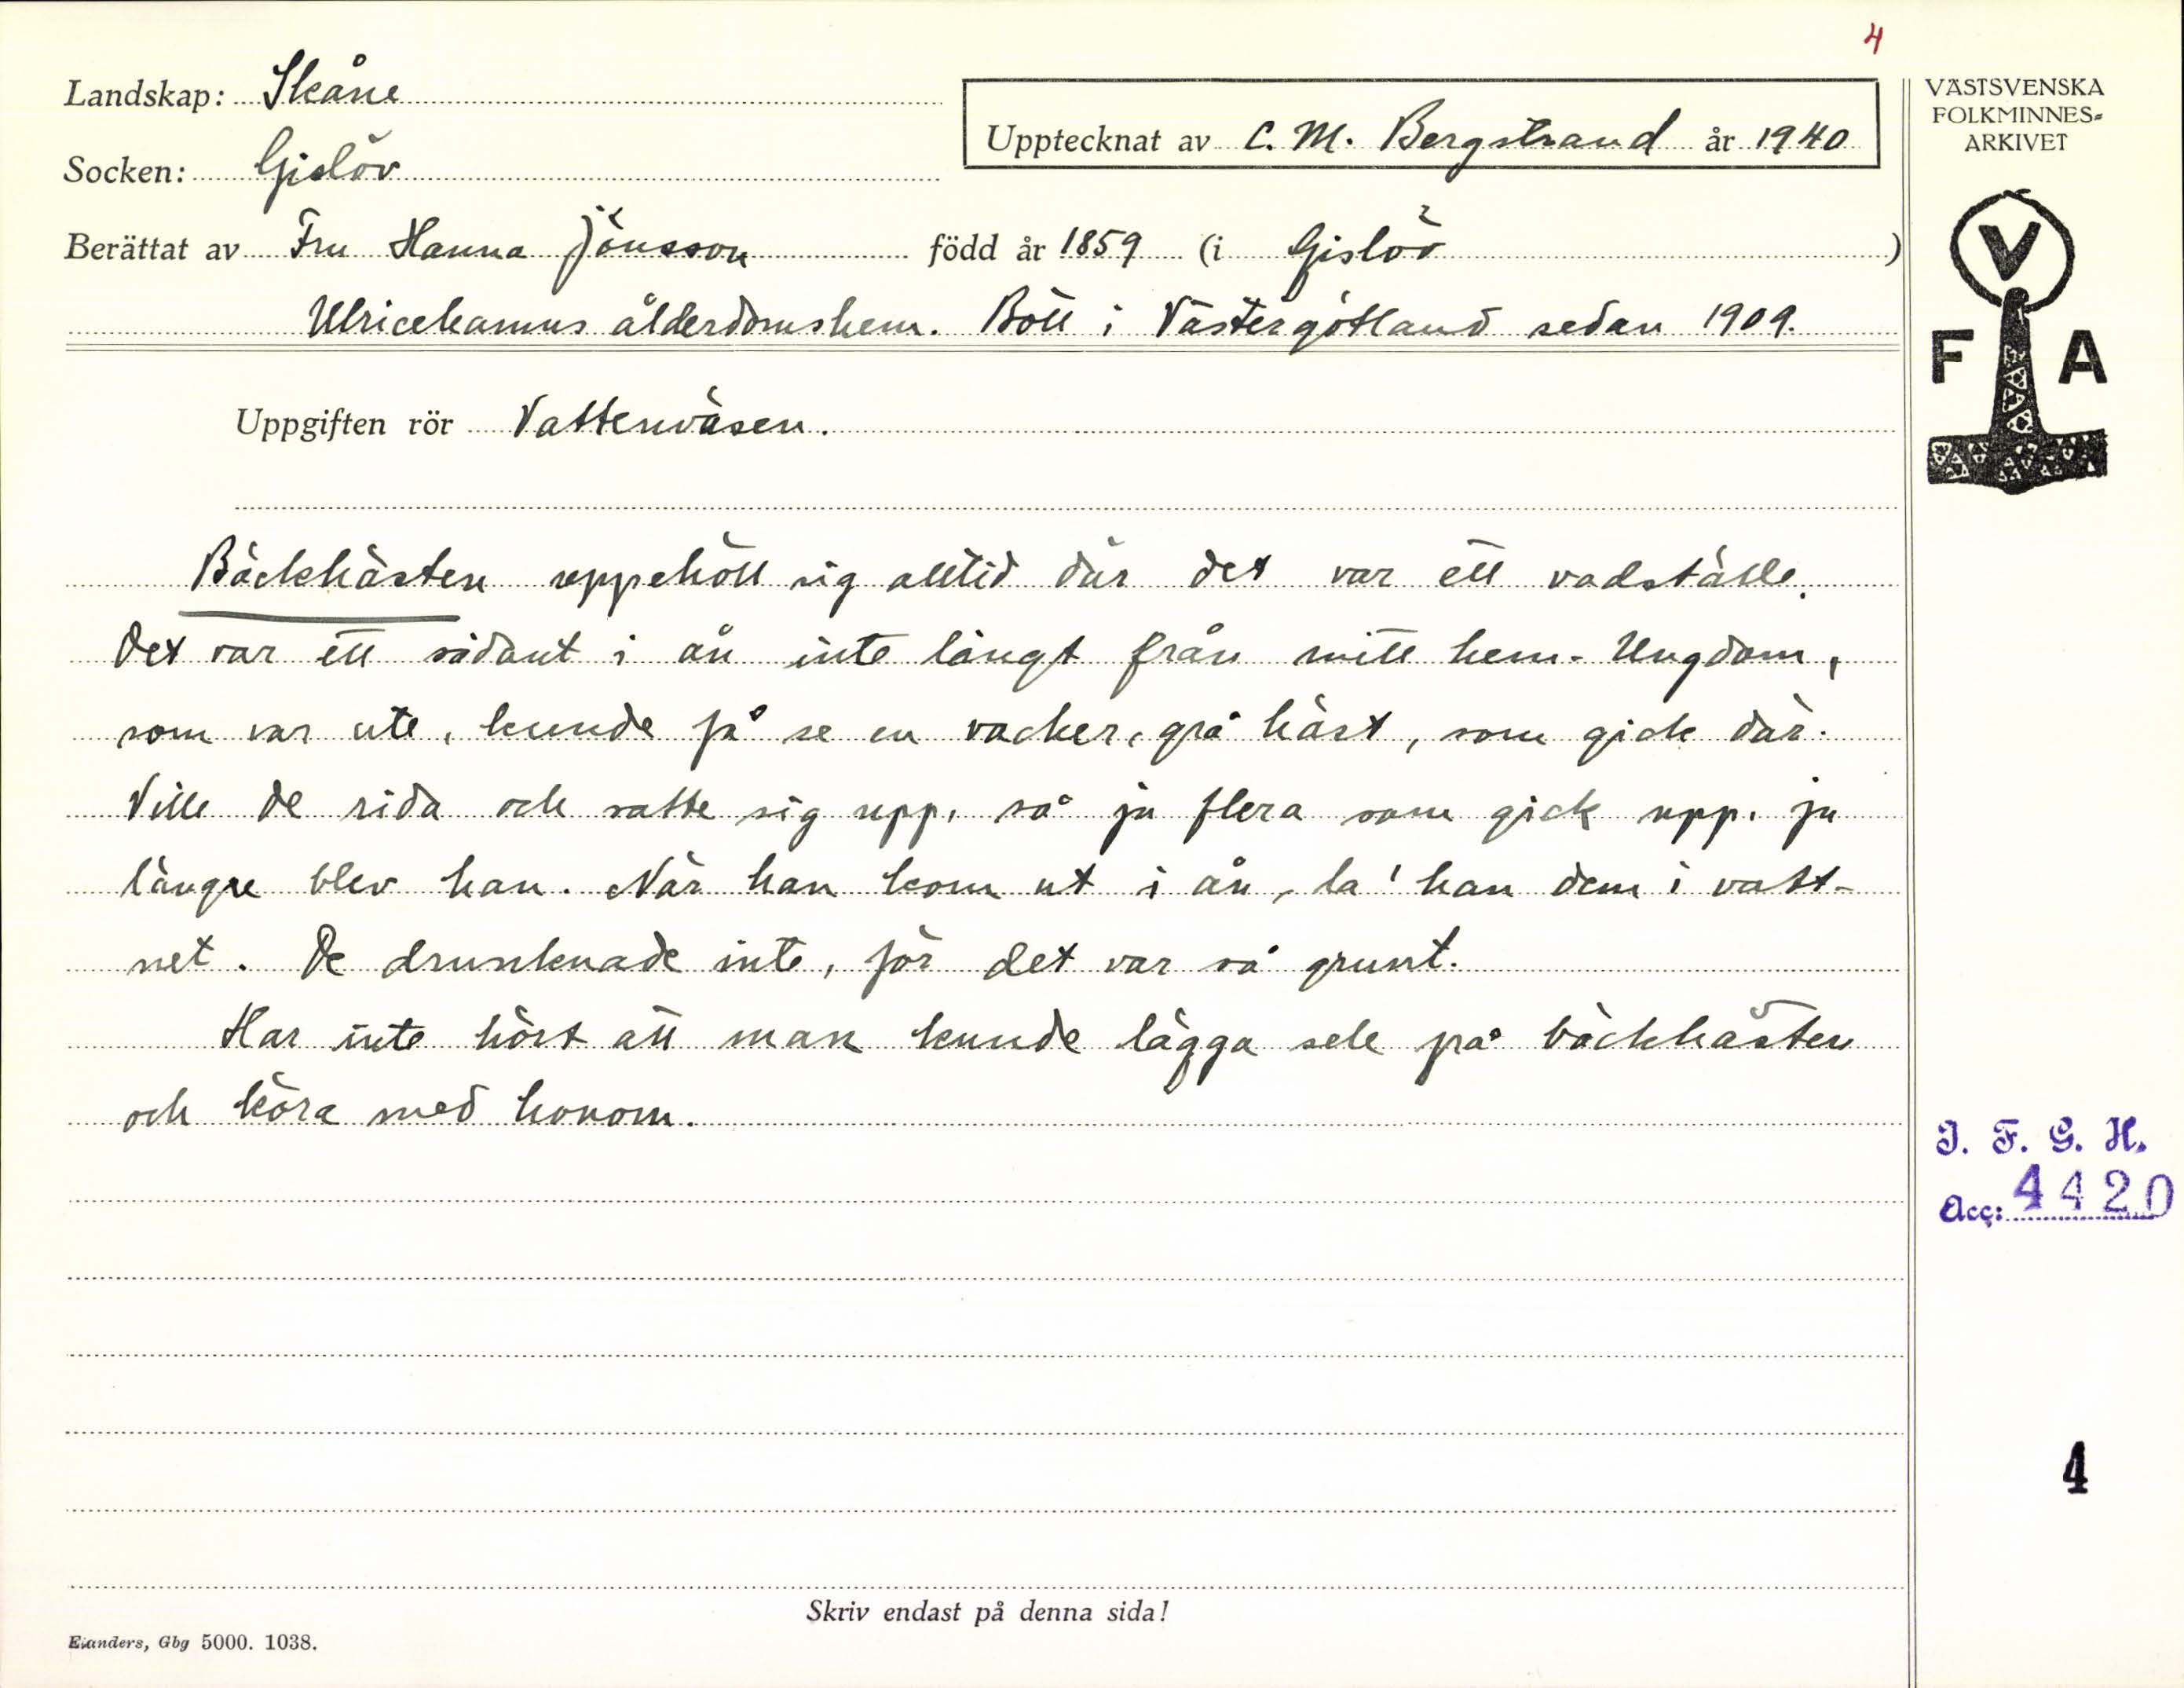 4
Landskap: Skåne
Upptecknat av C. M. Bergstrand år 1940
VÄSTSVENSKA
FOLKMINNES-
ARKIVET
Socken: Gislöv
Berättat av Fru Hanna Jönsson född år 1859 (i Gislöv)
Ulricehamns ålderdomshem. Bott i Västergötland sedan 1909.
V
F A
Uppgiften rör Vattenväsen.
Bäckhästen uppehöll sig alltid där det var ett vadställe.
Det var ett sådant i ån inte långt från mitt hem. Ungdom,
som var ute, kunde få se en vacker, grå häst, som gick där.
Ville de rida och satte sig upp, så ju flera som gick upp, ju
längre blev han. När han kom ut i ån, la' han dem i vatt-
net. De drunknade inte, för det var så grunt.
Har inte hört att man kunde lägga sele på bäckhästen
och köra med honom.
I. F. G. H.
Acc: 4420
4
Skriv endast på denna sida!
Elanders, Gbg 5000. 1038.